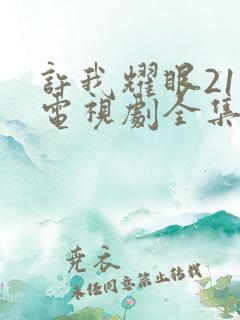 許我耀眼21
電視劇全集
堯衣
未經同意禁止轉載